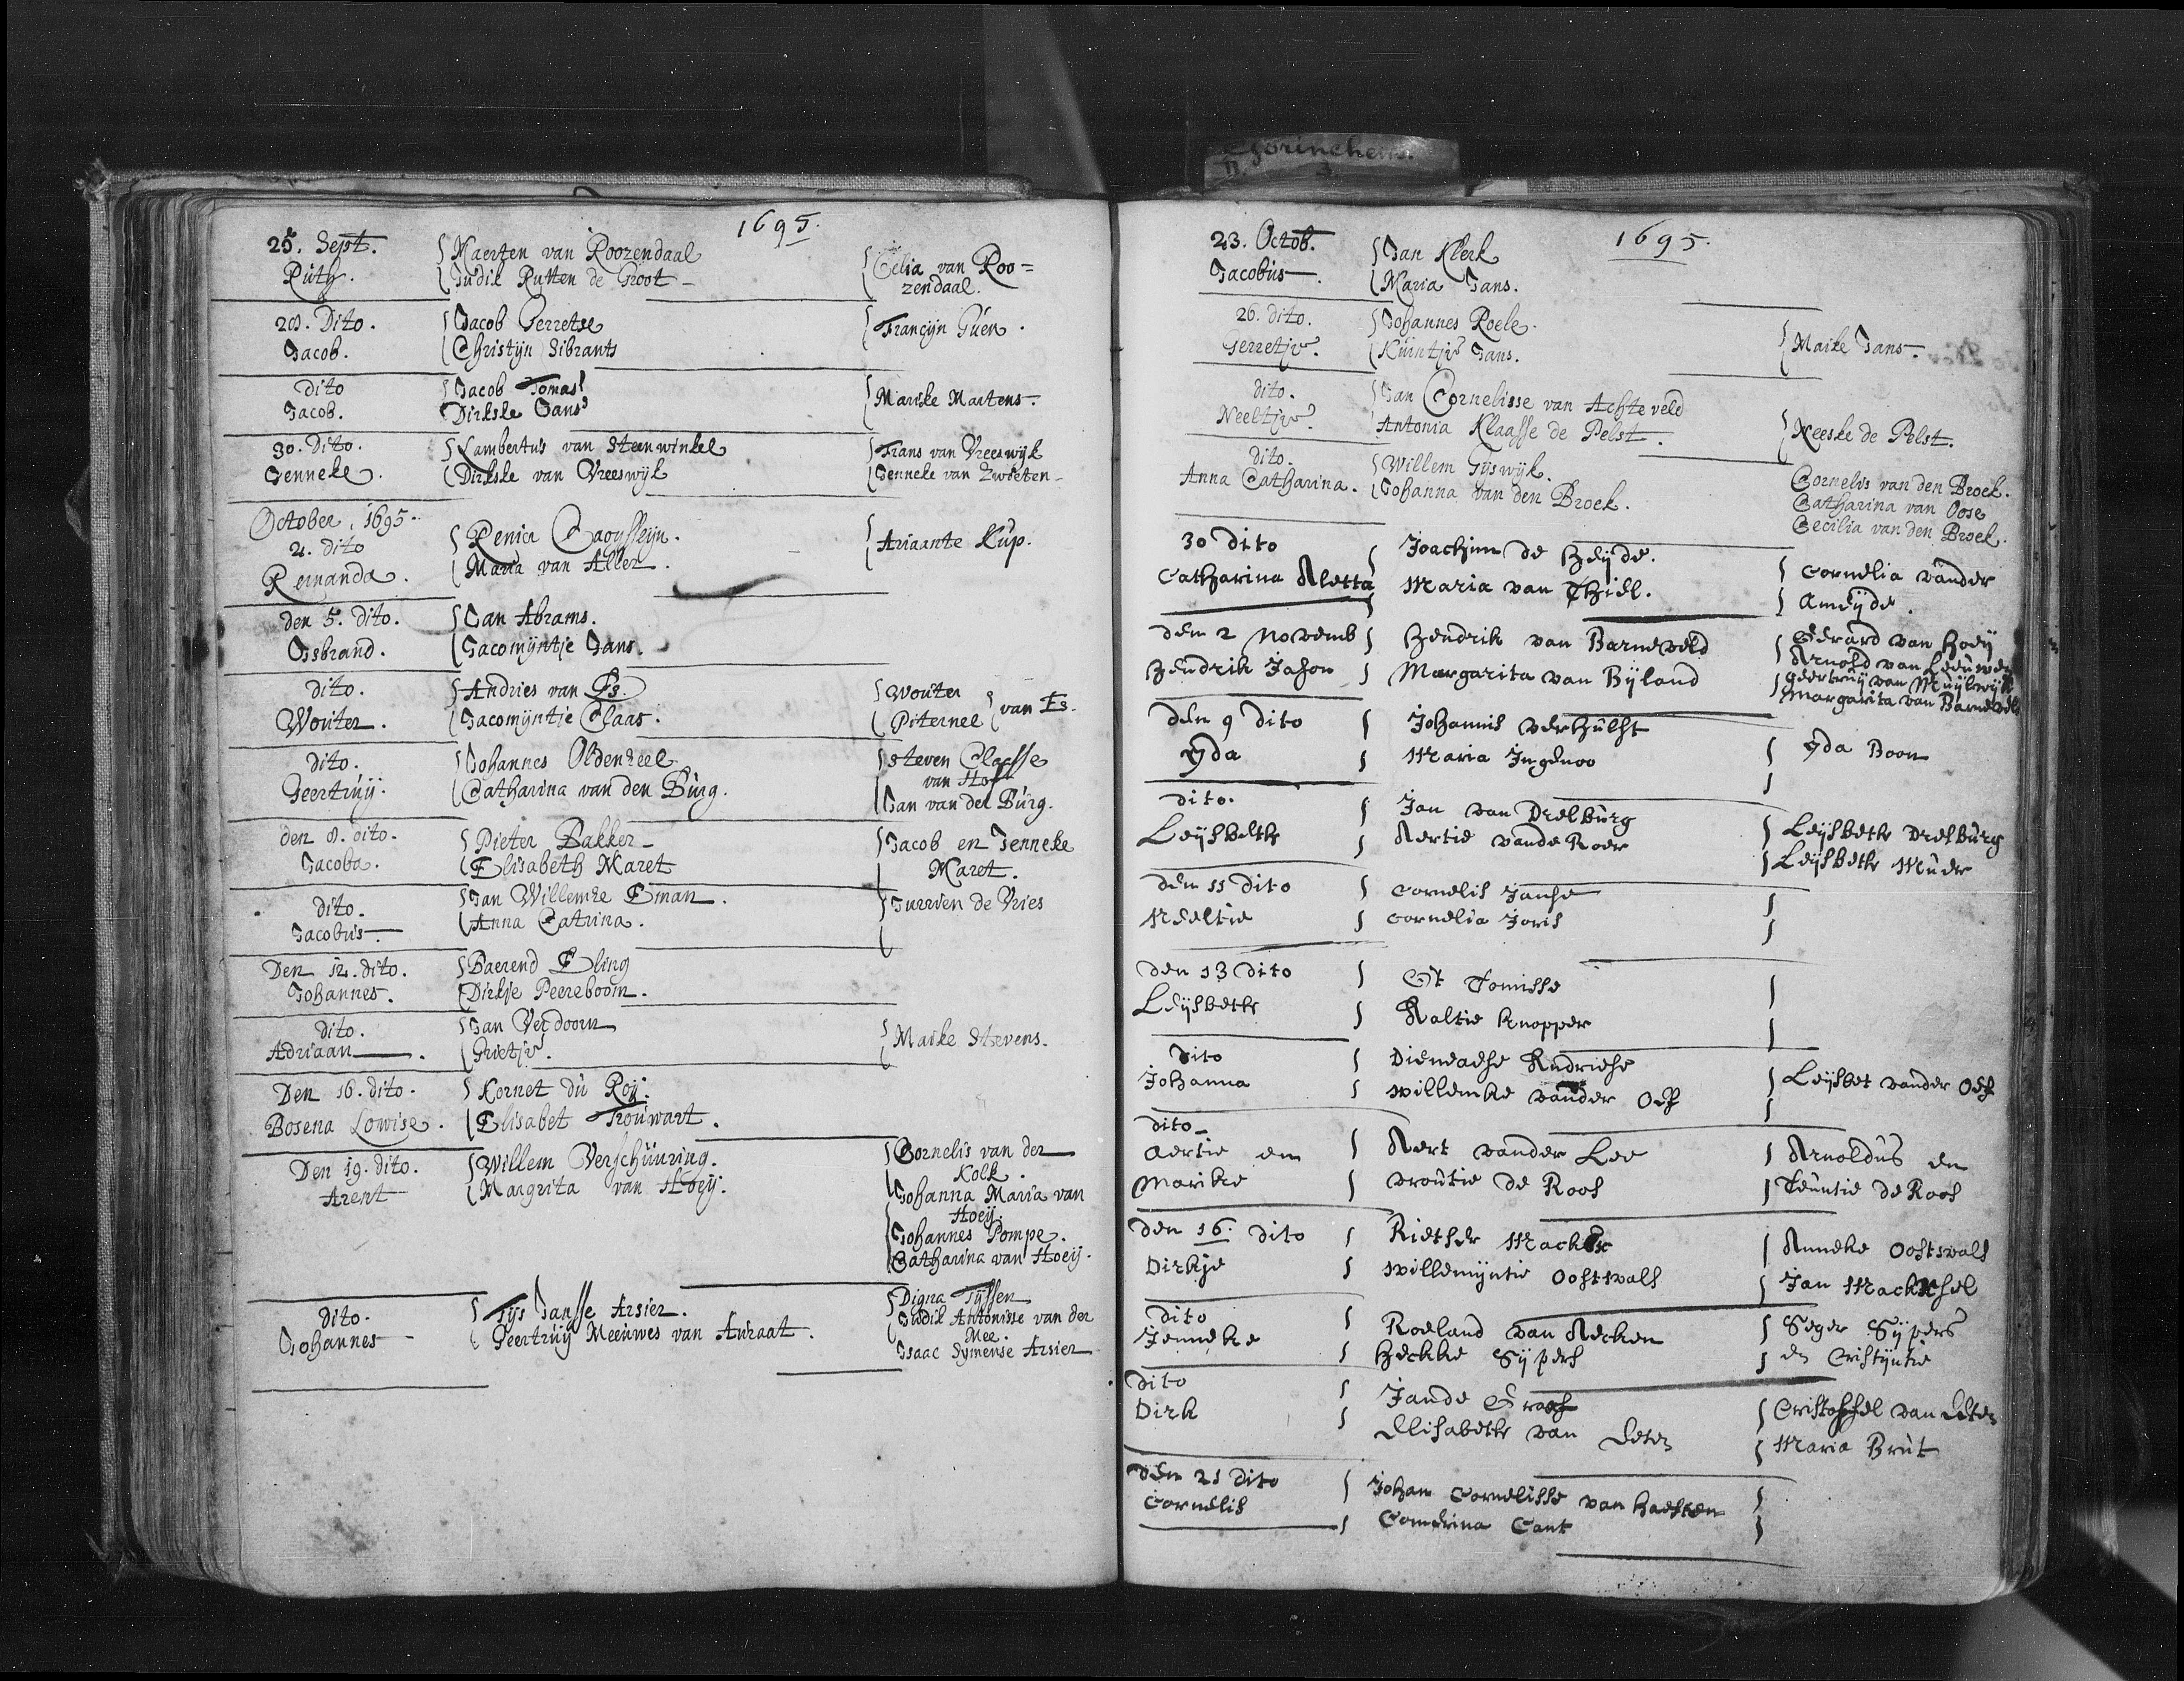 Gorinchem
3
1695.
25. Sept. Maerten van Roozendaal Celia van Roo=
Ruth. Judik Rutten de Groot zendaal.
28. Dito. Jacob Gerretse Francijn Guen.
Jacob. Christijn Sibrants
dito Jacob Tomas Marike Martens.
Jacob. Dirkske Jans
30. Dito. Lambertus van Steenwinkel Frans van Vreeswijk
Jenneke. Dirkske van Vreeswijk Jenneke van Zwieten
October, 1695.
2. dito Ariaante Kup.
Reinanda. Maria van Aller.
den 5. dito. Jan Abrams.
Isbrand. Jacomijntje Jans.
dito. Andries van Es. Wouter
Wouter. Jacomijntje Claas. Piternel van Es.
dito. Johannes Oldenzeel Steven Claesse
Geertruij. Catharina van den Burg. van Hof
Jan van der Burg.
den 8. dito. Pieter Bakker Jacob en Jenneke
Jacoba. Elisabeth Maret Maret.
dito. Jan Willemze Eman. Jurrien de Vries
Jacobus. Anna Catrina.
Den 12. dito. Baerend Eling
Johannes. Dirkje Peereboom.
dito. Jan Verdoorn Maike Stevens.
Adriaan. Grietje.
Den 16. dito. Kornet du Roy.
Bosena Lowise. Elisabet Trouwart.
Den 19. dito. Willem Verschuuring. Cornelis van der
Arent Margrita van Hoeij. Kolk.
Johanna Maria van
Hoeij.
Johannes Pompe.
Catharina van Hoeij.
dito. Tijs Jansse Arsier. Digna Tijssen
Johannes Geertruij Meeuwes van Auraat. Judik Antonisse van der
Mee.
Isaac Symense Arsier
1695.
23. Octob. Jan Klerk
Jacobus. Maria Jans.
26. dito. Johannes Roele.
Gerretje. Kuintje Jans. Maike Jans.
dito. Jan Cornelisse van Achteveld
Neeltje. Antonia Klaasse de Pelst. Neeske de Pelst.
dito. Willem Gijswijk. Cornelis van den Broek.
Anna Catharina. Johanna van den Broek. Catharina van Oose
Cecilia van den Broek.
30 dito Joachim de Heijde. Cornelia vander
Catharina Aletta Maria van Thiel. Ameijde.
den 2 Novemb Hendrik van Barneveld Gerard van Hoeij
Hendrik Jason Margarita van Bijland Arnold van Leeuwen
Geertruij van Muijlwijk
Margarita van Barneveld
den 9 dito Johannis verhulst Yda Boon
Yda Maria Ingenoo
dito. Jan van Drelburg Leijsbeth Drelburg
Leijsbeth Aertie vande Roer Leijsbeth Muder
den 11 dito Cornelis Janse
Neeltie Cornelia Joris
den 13 dito Ot Tomisse
Leijsbeth Aaltie Knopper
dito Andriese Leijsbet vander Oest
Johanna Willemke vander Oest
dito
Aertie en Aert vander Lee Arnoldus en
Marike vroutie de Roos Teuntie de Roos
den 16. dito Anneke Oostwals
Dirkje Willemijntie Oostwals Jan
dito Roeland van Aecken Seger Sijpers
Jenneke Heckke Sijpers en Cristijntie
dito Jan de Groos Cristoffel van Deten
Dirk Elisabeth van Deten Maria Brut
den 21 dito Johan Cornelisse van Haeften
Cornelis Comerina Cant